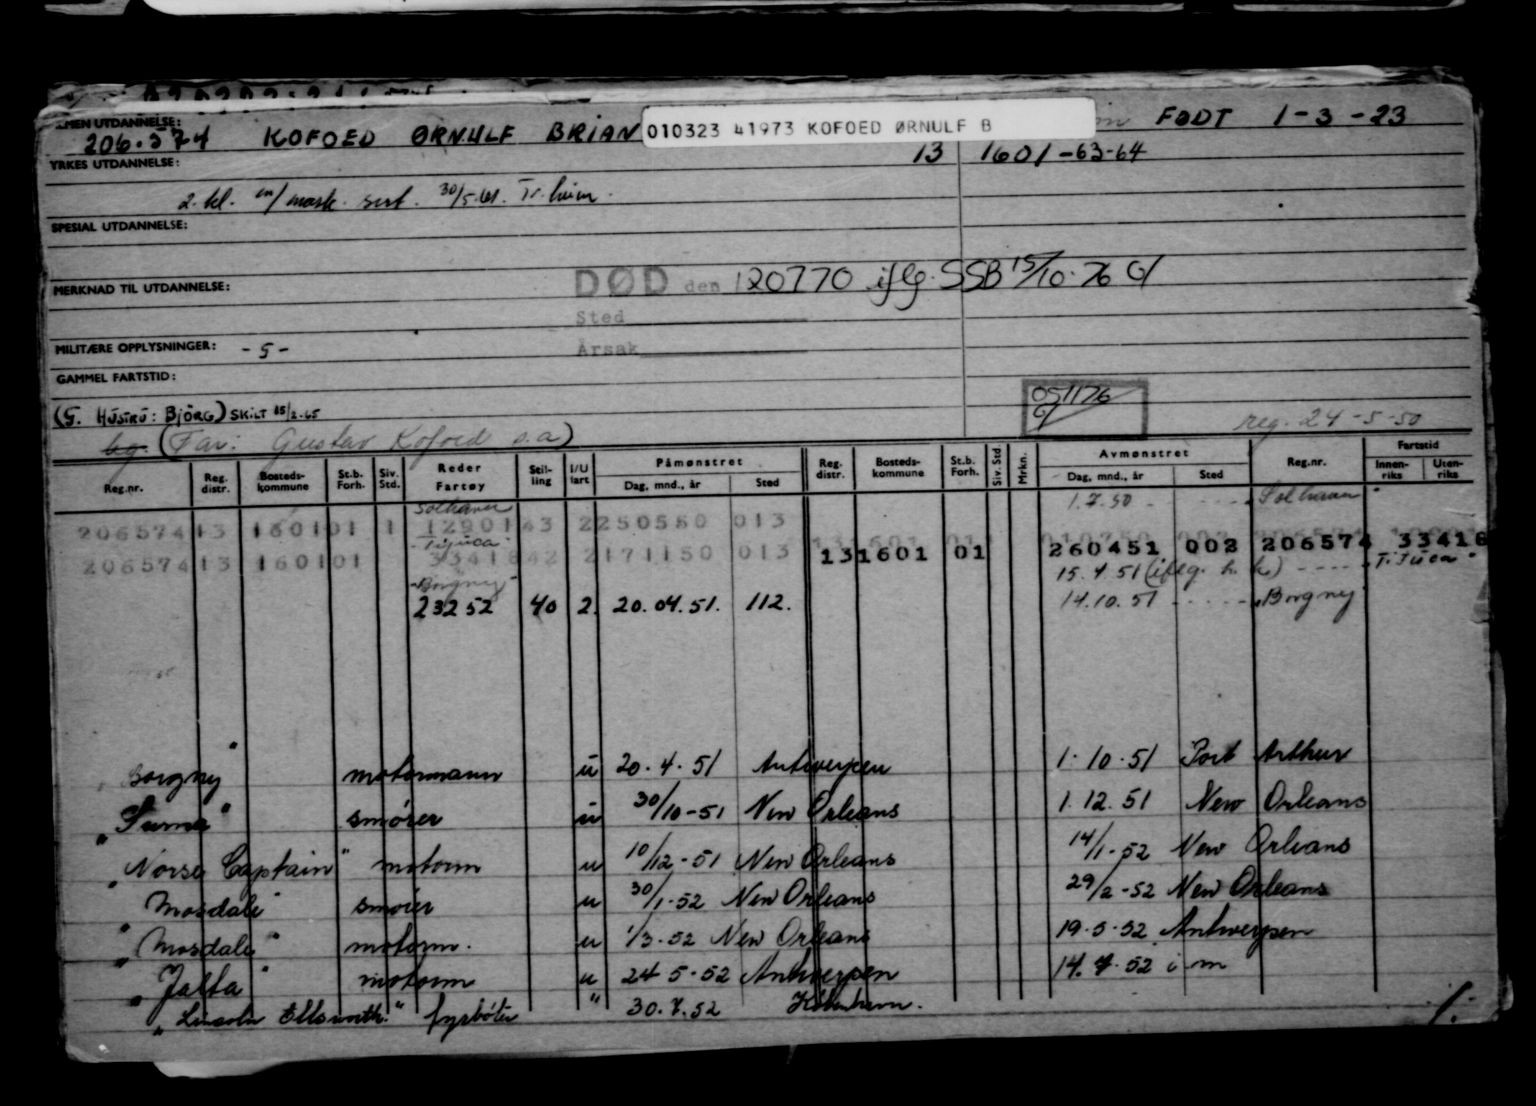 ALMEN UTDANNELSE:
206.574 KOFOED ØRNULF BRIAN 010323 41973 KOFOED ØRNULF B FØDT 1-3-23
YRKES UTDANNELSE: 13 1601-63-64
2. kl. m/mask. sert. 30/5.61. Tr.heim.
SPESIAL UTDANNELSE:
MERKNAD TIL UTDANNELSE: DØD den 120770 iflg. SSB 15/10.76
Sted
MILITÆRE OPPLYSNINGER: -5- Årsak
GAMMEL FARTSTID:
051176
(G. HUSTRU: BJÖRG) SKILT 15/2.65
(Far: Gustav Kofoed s.a) reg. 24-5-50
Reg.nr. Reg. distr. Bosteds- kommune St.b. Forh. Siv. Std. Reder Fartøy Stil- ling I/U fart Påmønstret Dag, mnd., år Sted Reg. distr. Bosteds- kommune St.b. Forh. Siv. Std. Mrkn. Avmønstret Dag, mnd., år Sted Reg.nr. Fartstid Innen- riks Uten- riks
Solhaven 1.7.50 - - - - "Solhaven"
206574 13 1601 01 1 12901 43 2 250550 013 131601 01 010750 002 206574
-Tijuca-
206574 13 1601 01 33418 42 2 171150 013 131601 01 260451 002 206574 33418
15.4.51 (iflg. h.k.) - - - - "Tijuca"
-Borgny-
23252 40 2. 20.04.51. 112. 14.10.51 - - - - - "Borgny"
"Borgny" motormann u 20.4.51 Antwerpen 1.10.51 Port Arthur
"Suma" smörer u 30/10-51 New Orleans 1.12.51 New Orleans
"Norse Captain" motorm u 10/12-51 New Orleans 14/1-52 New Orleans
"Mosdale" smörer u 30/1-52 New Orleans 29/2-52 New Orleans
"Mosdale" motorm. u 1/3-52 New Orleans 19.5.52 Antwerpen
"Jalta" motorm u 24.5.52 Antwerpen 14.7.52 i m
"Lincoln Ellsworth" fyrböter " 30.7.52 Köbenhavn.